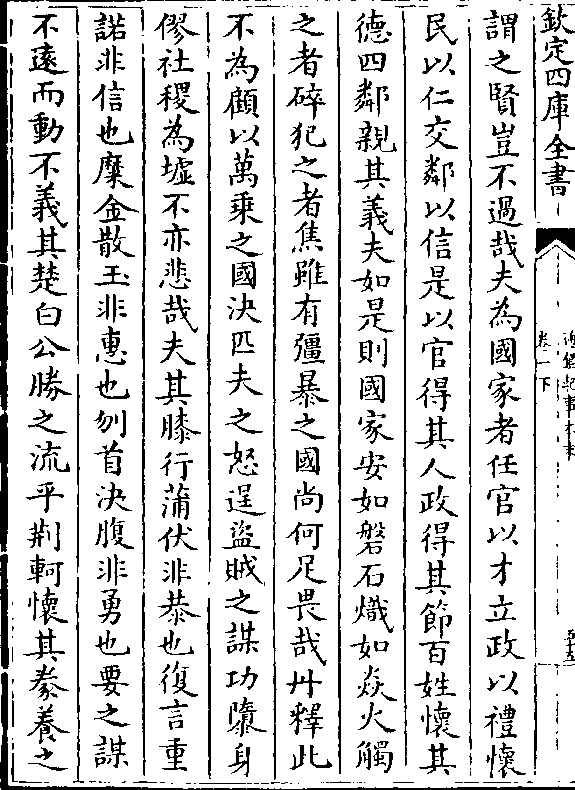 欽定四庫全書
卷一下
謂之賢豈不過哉夫為國家者任官以才立政以禮懷
民以仁交鄰以信是以官得其人政得其節百姓懷其
德四鄰親其義夫如是則國家安如磐石熾如焱火觸
之者碎犯之者焦雖有彊暴之國尚何足畏哉丹釋此
不為顧以萬乗之國決匹夫之怒逞盜賊之謀功隳身
僇社稷為墟不亦悲哉夫其膝行蒲伏非恭也復言重
諾非信也糜金散玉非惠也刎首決腹非勇也要之謀
不遠而動不義其楚白公勝之流乎荆軻懷其豢養之